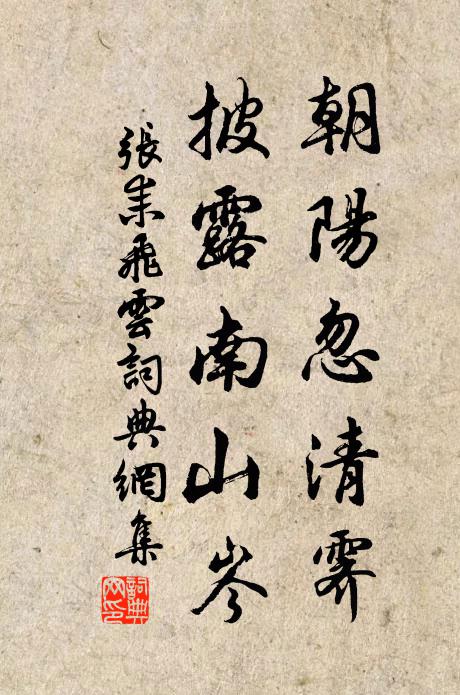 朝陽忽清霽
披露南山岑
張耒飛雲詞典網集
詞典網印